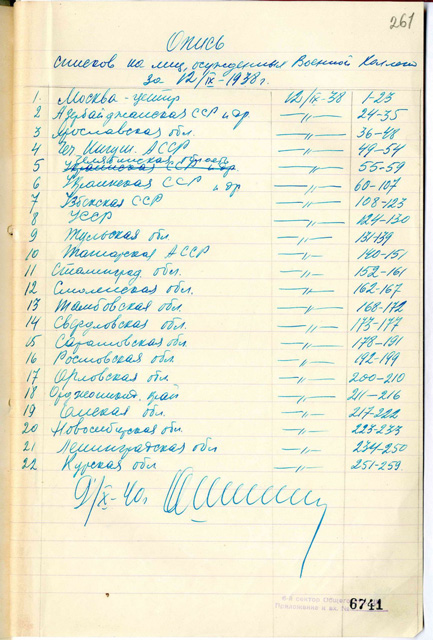 261
Опись
списков на лиц, осужденных Военной Коллег.
за 12/IX-1938г.
1. Москва-центр 12/IX-38 1-23
2 Азербайджанская ССР и др —〃— 24-35
3 Ярославская обл. —〃— 36-48
4 Чеч. Ингуш. АССР —〃— 49-54
Челябинская область
5 Украинская ССР и др —〃— 55-59
6 Украинская ССР и др —〃— 60-107
7 Узбекская ССР —〃— 108-123
8 УССР —〃— 124-130
9 Тульская обл —〃— 131-139
10 Татарская АССР —〃— 140-151
11 Сталинград. обл. —〃— 152-161
12 Смоленская обл. —〃— 162-167
13 Тамбовская обл. —〃— 168-172
14 Свердловская обл. —〃— 173-177
15 Саратовская обл —〃— 178-191
16 Ростовская обл. —〃— 192-199
17 Орловская обл —〃— 200-210
18 Орджоникид. край —〃— 211-216
19 Омская обл. —〃— 217-222
20 Новосибирская обл —〃— 223-233
21 Ленинградская обл —〃— 234-250
22 Курская обл —〃— 251-259
/X-40г.
6741